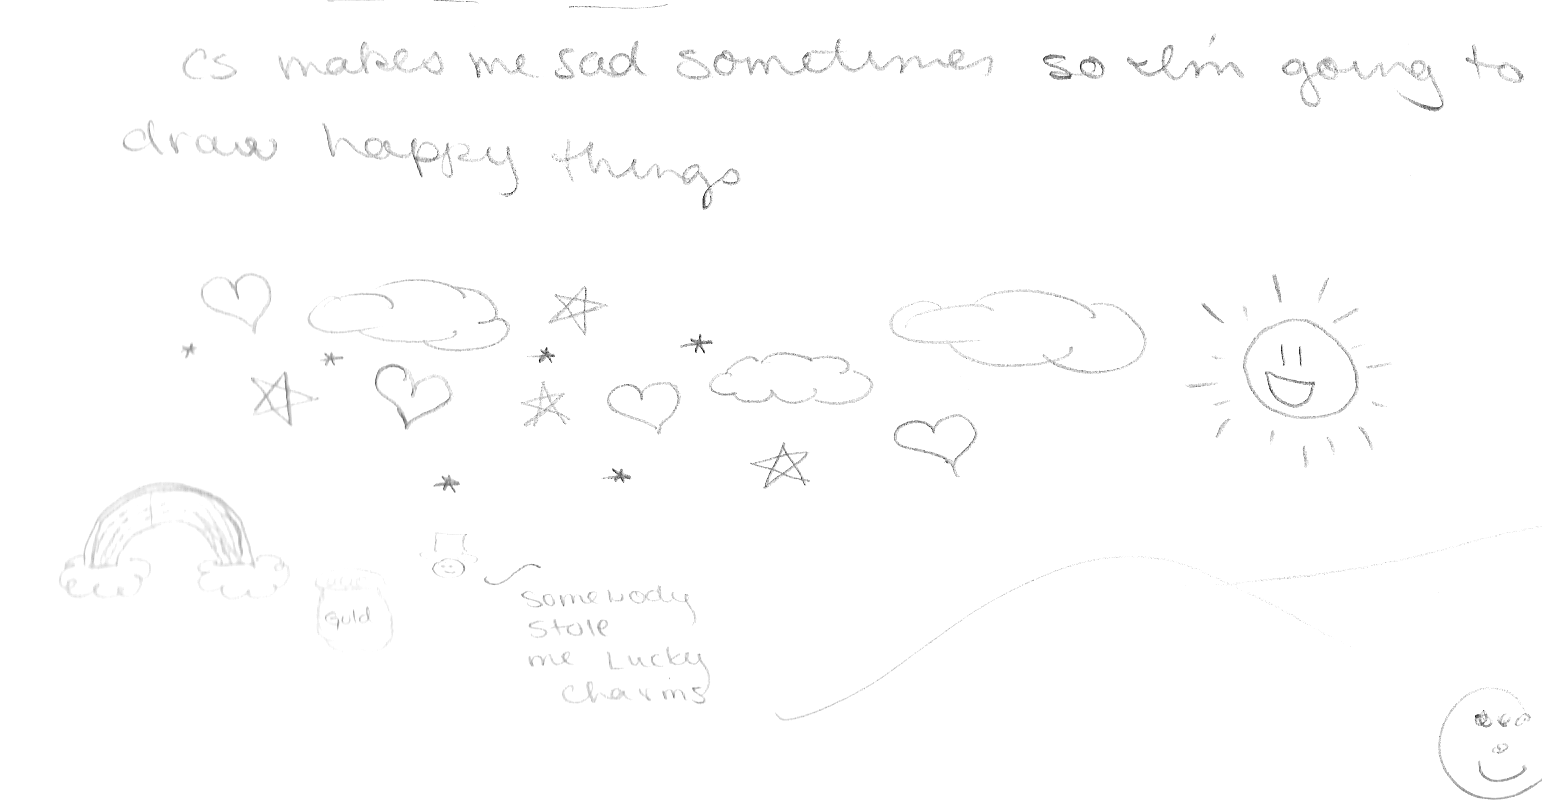 cs makes me sad sometimes so I'm going to
draw happy things
gold
somebody
stole
me Lucky
charms